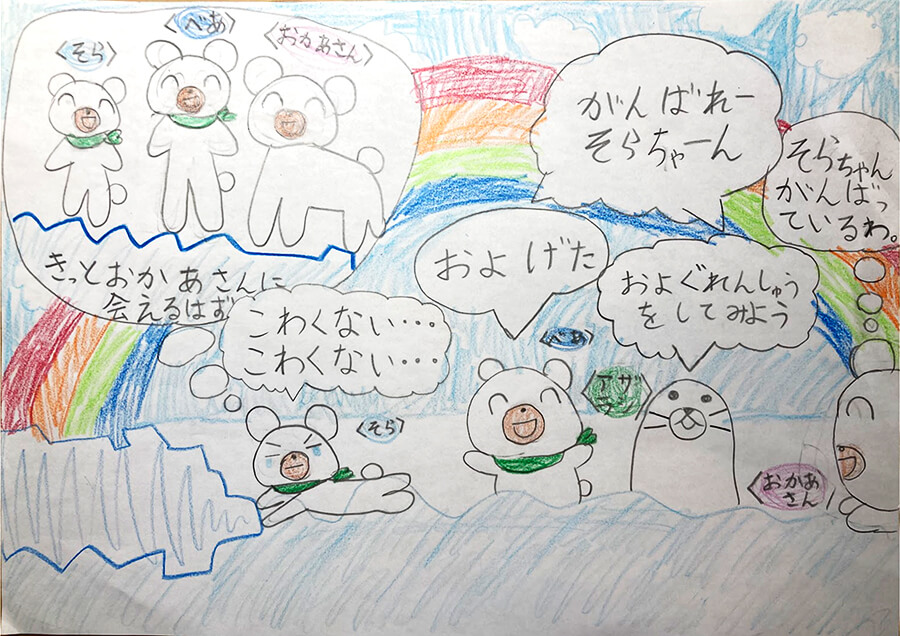 〈そら〉
〈べあ〉
〈おかあさん〉
きっとおかあさんに
会えるはず
がんばれー
そらちゃーん
そらちゃん
がんばっ
ているわ。
およげた
およぐれんしゅう
をしてみよう
こわくない…
こわくない…
〈べあ〉
〈そら〉
〈アザ
ラシ〉
〈おかあ
さん〉